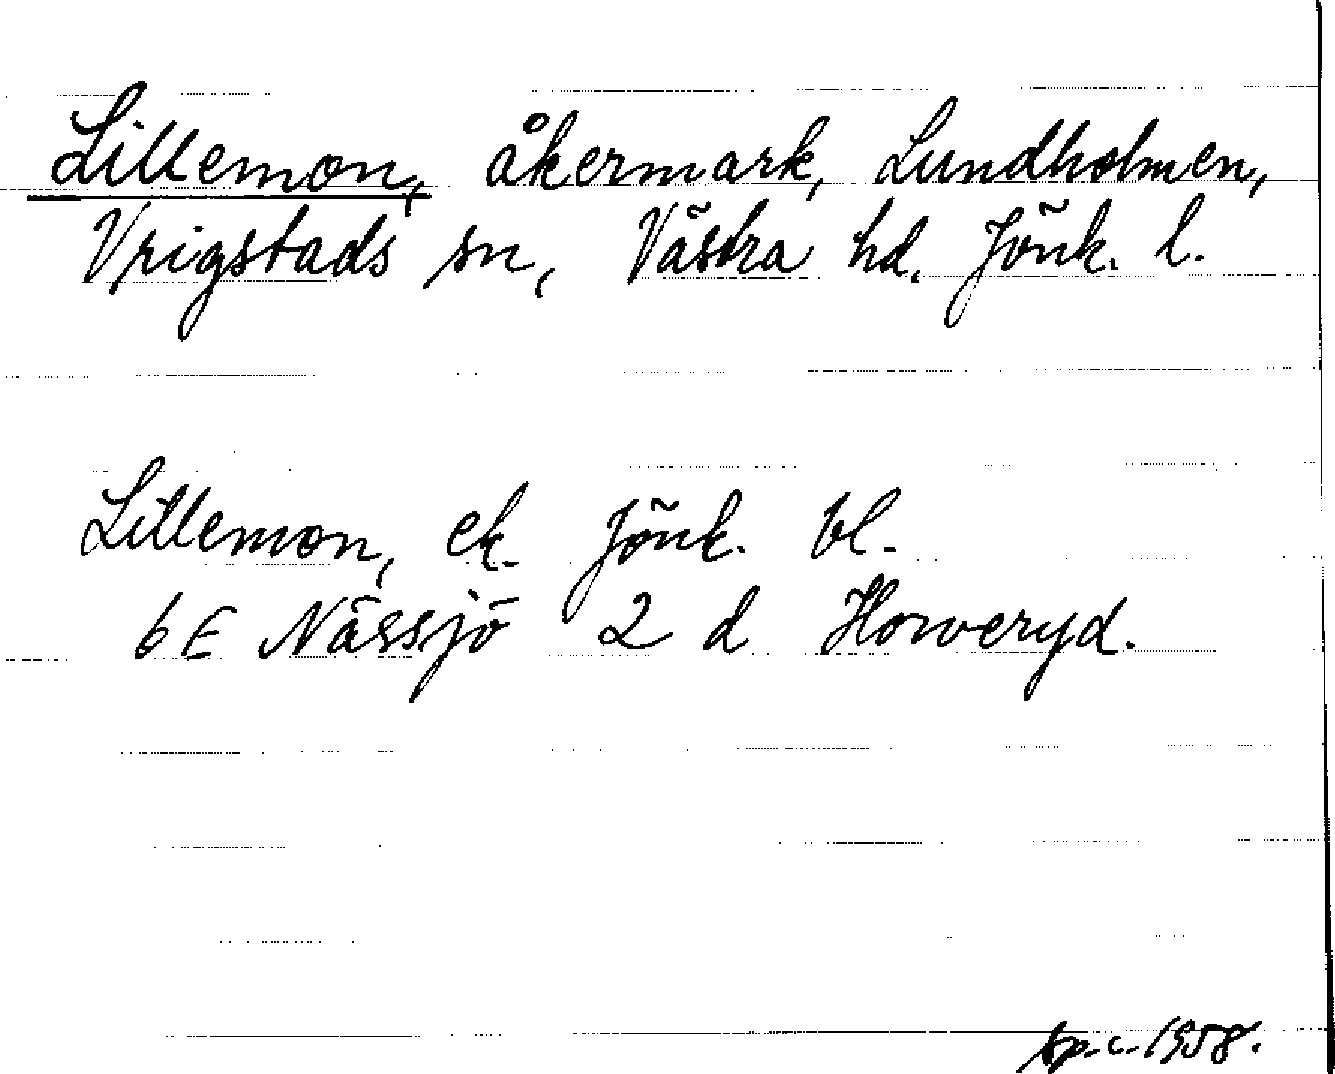 Lillemon, åkermark, Lundholmen,
Vrigstads sn, Västra hd. Jönk. l.
Lillemon, ek. Jönk. bl.
6 E Nässjö 2 d Horveryd.
1958.